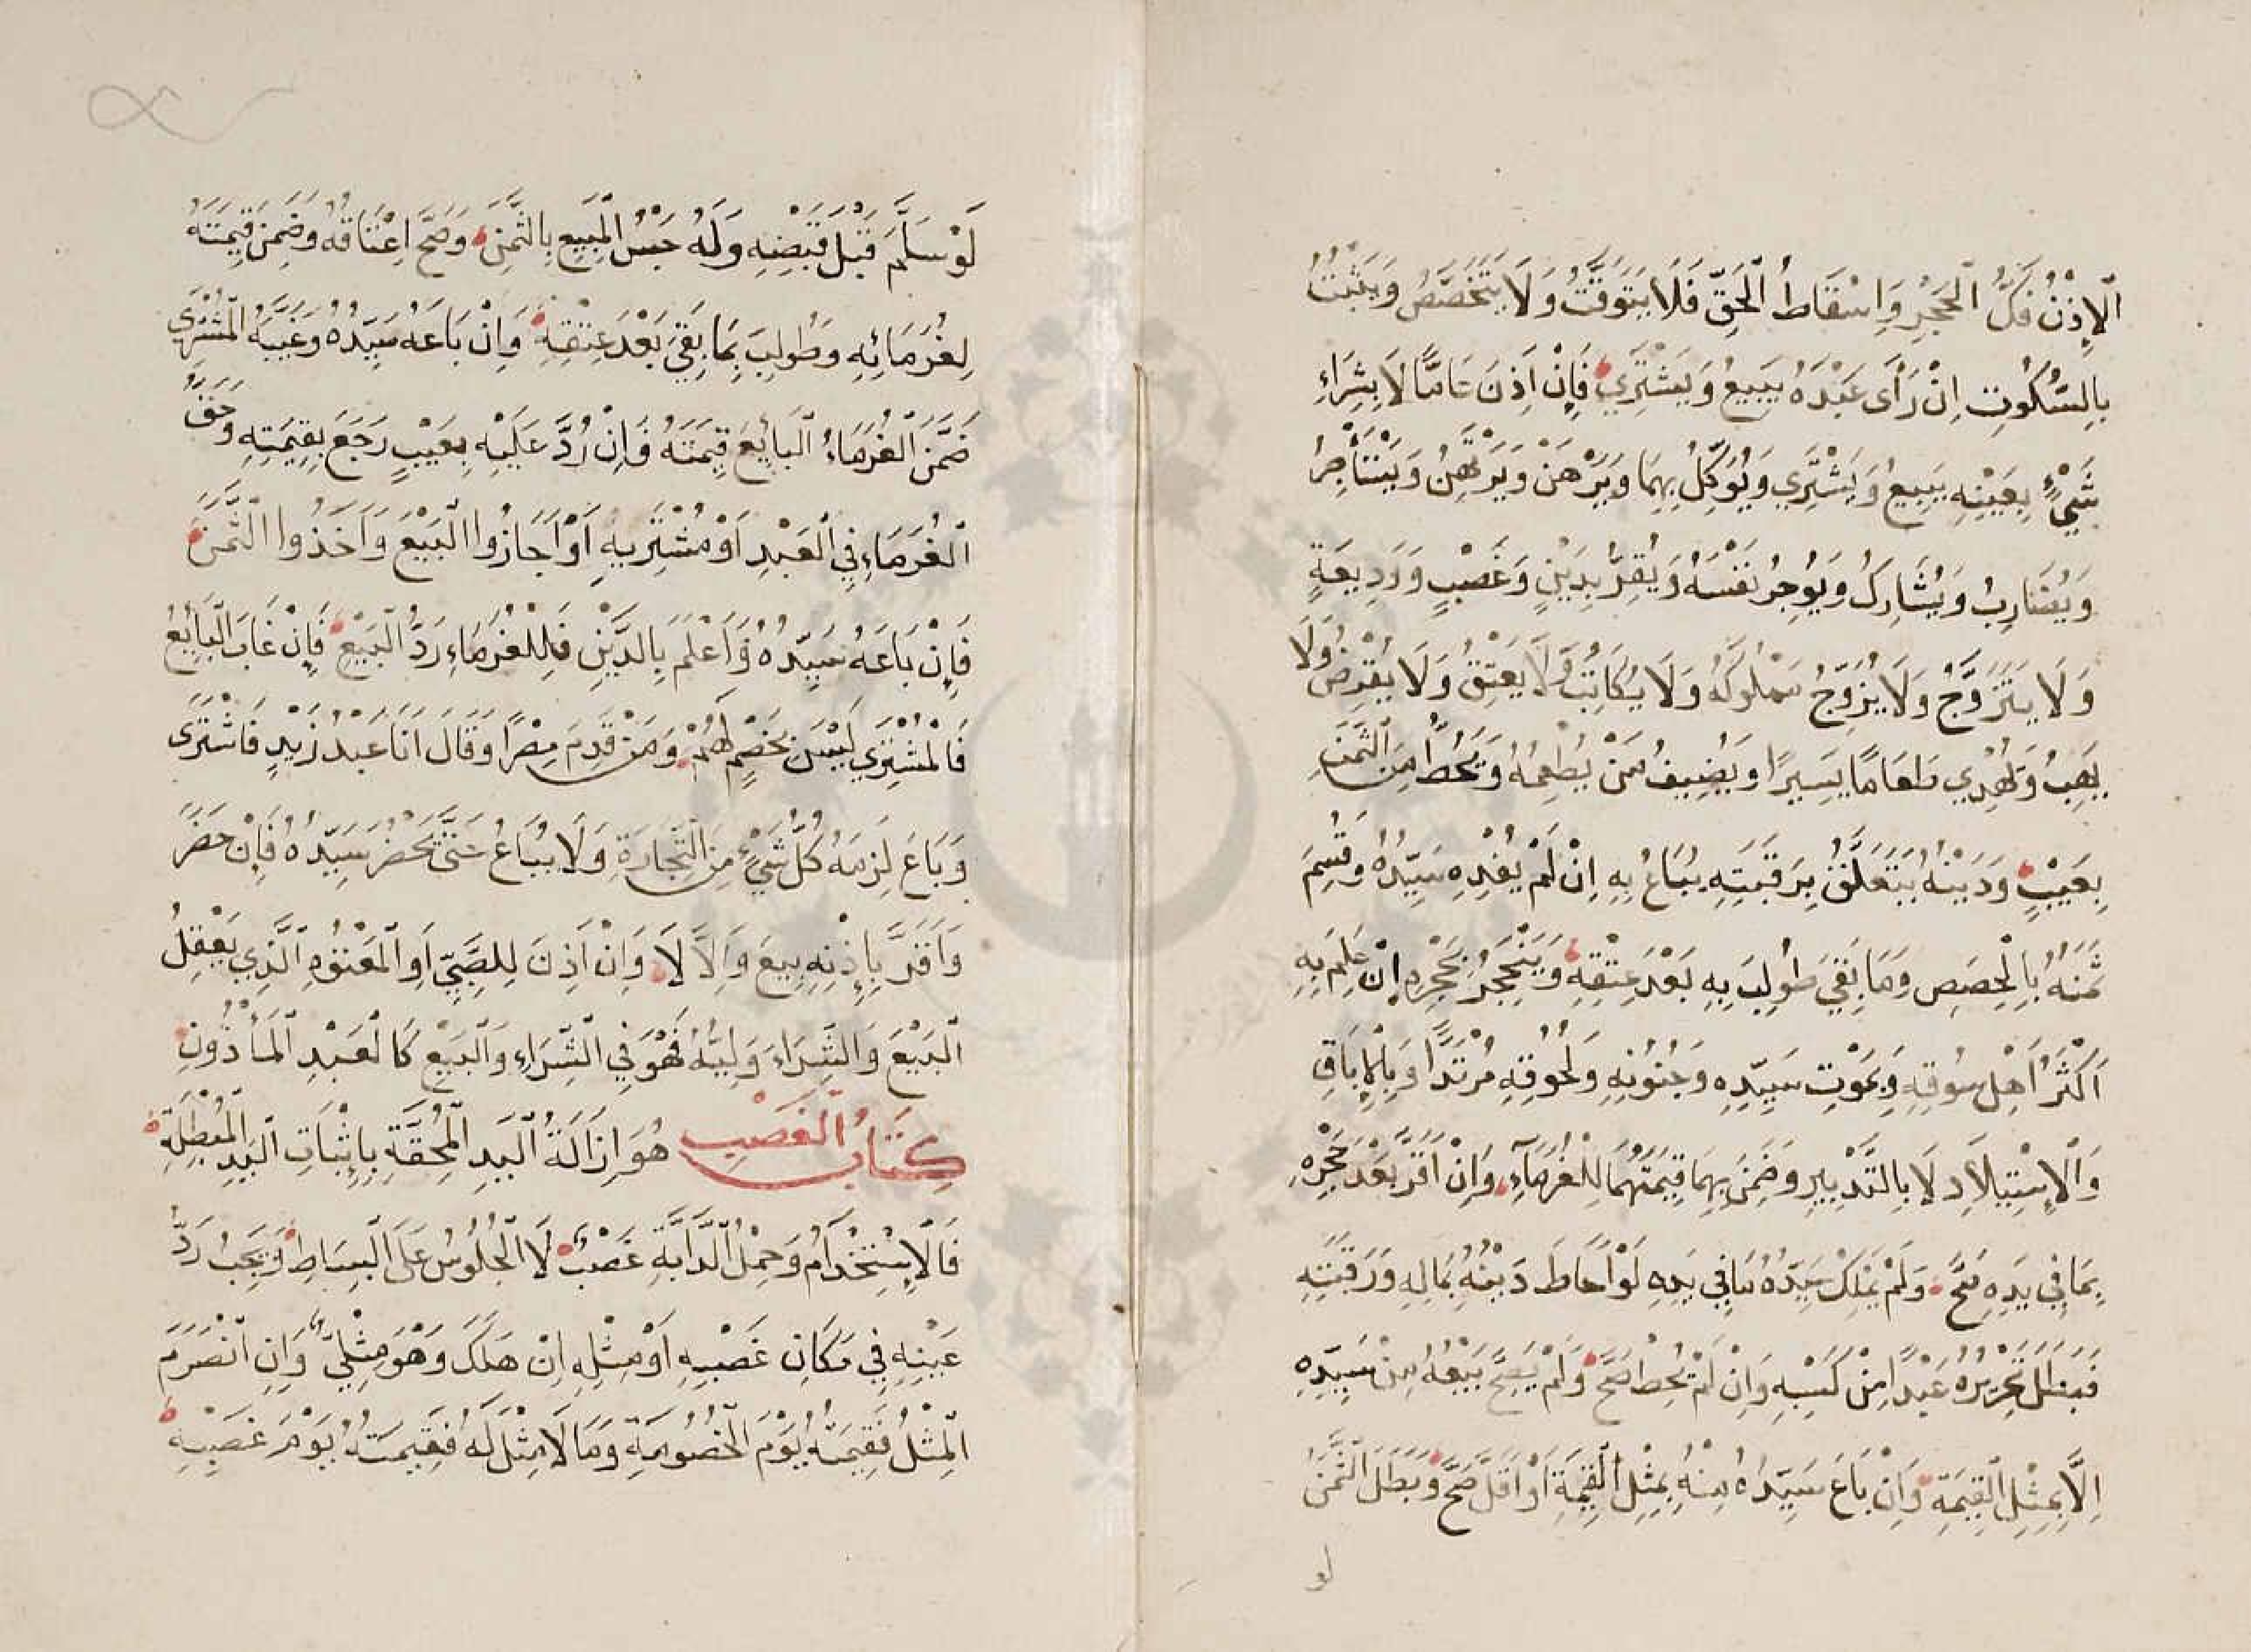 اَلْإِذْنُ فَكُّ الْحَجْرِ وَإِسْقَاطُ الْحَقِّ فَلَا يَتَوَقَّتُ وَلَا يَتَخَصَّصُ وَيَثْبُتُ
بِالسُّكُوتِ اِنْ رَأَى عَبْدَهُ يَبِيعُ وَيَشْتَرِي فَإِنْ اَذِنَ عَامًّا لَا بِشِرَاءِ
شَيْءٍ بِعَيْنِهِ يَبِيعُ وَيَشْتَرِي وَيُوَكِّلُ بِهِمَا وَيَرْهَنُ وَيَرْتَهِنُ وَيَسْتَأْجِرُ
وَيُضَارِبُ وَيُشَارِكُ وَيُوجِرُ نَفْسَهُ وَيُقِرُّ بِدَيْنٍ وَغَصْبٍ وَوَدِيعَةٍ
وَلَا يَتَزَوَّجُ وَلَا يُزَوِّجُ مَمْلُوكَهُ وَلَا يُكَاتِبُ وَلَا يُعْتِقُ وَلَا يُقْرِضُ وَلَا
يَهَبُ وَيُهْدِي طَعَامًا يَسِيرًا وَيُضِيفُ مَنْ يُطْعِمُهُ وَيَحُطُّ مِنَ الثَّمَنِ
بِعَيْبٍ وَدَيْنُهُ يَتَعَلَّقُ بِرَقَبَتِهِ يُبَاعُ بِهِ اِنْ لَمْ يَفْدِهِ سَيِّدُهُ وَقُسِمَ
ثَمَنُهُ بِالْحِصَصِ وَمَا بَقِيَ طُولِبَ بِهِ بَعْدَ عِتْقِهِ وَيَنْحَجِرُ بِحَجْرِهِ اِنْ عَلِمَ بِهِ
اَكْثَرُ اَهْلِ سُوقِهِ وَبِمَوْتِ سَيِّدِهِ وَجُنُونِهِ وَلُحُوقِهِ مُرْتَدًّا وَبِالْإِبَاقِ
وَالْإِسْتِيلَادِ لَا بِالتَّدْبِيرِ وَضَمِنَ بِهِمَا قِيمَتَهُمَا لِلْغُرَمَاءِ وَاِنْ اَقَرَّ بَعْدَ حَجْرِهِ
بِمَا فِي يَدِهِ صَحَّ وَلَمْ يَمْلِكْ سَيِّدُهُ مَا فِي يَدِهِ لَوْ اَحَاطَ دَيْنُهُ بِمَالِهِ وَرَقَبَتِهِ
فَبَطَلَ تَحْرِيرُهُ عَبْدًا مِنْ كَسْبِهِ وَاِنْ لَمْ يُحِطْ صَحَّ وَلَمْ يَصِحَّ بَيْعُهُ مِنْ سَيِّدِهِ
اِلَّا بِمِثْلِ الْقِيمَةِ وَاِنْ بَاعَ سَيِّدُهُ مِنْهُ بِمِثْلِ الْقِيمَةِ اَوْ اَقَلَّ صَحَّ وَبَطَلَ الثَّمَنُ
لو
لَوْ سَلَّمَ قَبْلَ قَبْضِهِ وَلَهُ حَبْسُ الْمَبِيعِ بِالثَّمَنِ وَصَحَّ اِعْتَاقُهُ وَضَمِنَ قِيمَتَهُ
لِغُرَمَائِهِ وَطُولِبَ بِمَا بَقِيَ بَعْدَ عِتْقِهِ وَاِنْ بَاعَهُ سَيِّدُهُ وَغَيَّبَهُ الْمُشْتَرِي
ضَمَّنَ الْغُرَمَاءُ الْبَائِعَ قِيمَتَهُ فَاِنْ رُدَّ عَلَيْهِ بِعَيْبٍ رَجَعَ بِقِيمَتِهِ وَحَقُّ
الْغُرَمَاءِ فِي الْعَبْدِ اَوْ مُشْتَرِيهِ اَوْ اَجَازُوا الْبَيْعَ وَاَخَذُوا الثَّمَنَ
فَاِنْ بَاعَهُ سَيِّدُهُ وَاَعْلَمَ بِالدَّيْنِ فَلِلْغُرَمَاءِ رَدُّ الْبَيْعِ فَاِنْ غَابَ الْبَائِعُ
فَالْمُشْتَرِي لَيْسَ بِخَصْمٍ لَهُمْ وَمَنْ قَدِمَ مِصْرًا وَقَالَ اَنَا عَبْدُ زَيْدٍ فَاشْتَرَى
وَبَاعَ لَزِمَهُ كُلُّ شَيْءٍ مِنَ التِّجَارَةِ وَلَا يُبَاعُ حَتَّى يَحْضُرَ سَيِّدُهُ فَاِنْ حَضَرَ
وَاَقَرَّ بِاِذْنِهِ بِيعَ وَاِلَّا لَا وَاِنْ اَذِنَ لِلصَّبِيِّ اَوِ الْمَعْتُوهِ الَّذِي يَعْقِلُ
الْبَيْعَ وَالشِّرَاءَ وَلِيُّهُ فَهُوَ فِي الشِّرَاءِ وَالْبَيْعِ كَالْعَبْدِ الْمَأْذُونِ
كِتَابُ الْغَصْبِ هُوَ اِزَالَةُ الْيَدِ الْمُحِقَّةِ بِاِثْبَاتِ الْيَدِ الْمُبْطِلَةِ
فَالْاِسْتِخْدَامُ وَحَمْلُ الدَّابَّةِ غَصْبٌ لَا الْجُلُوسُ عَلَى الْبِسَاطِ وَيَجِبُ رَدُّ
عَيْنِهِ فِي مَكَانِ غَصْبِهِ اَوْ مِثْلِهِ اِنْ هَلَكَ وَهُوَ مِثْلِيٌّ وَاِنِ انْصَرَمَ
الْمِثْلُ فَقِيمَتُهُ يَوْمَ الْخُصُومَةِ وَمَا لَا مِثْلَ لَهُ فَقِيمَتُهُ يَوْمَ غَصْبِهِ